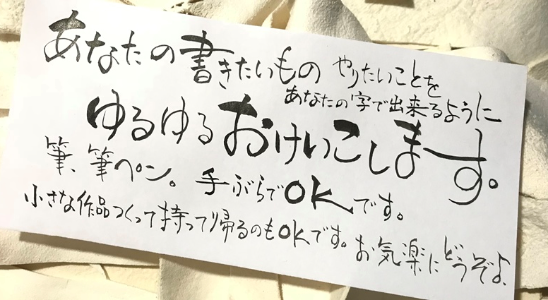 あなたの書きたいもの やりたいことを
あなたの字で出来るように
ゆるゆるおけいこします。
筆、筆ペン。手ぶらでOKです。
小さな作品つくって持って帰るのもOKです。お気楽にどうぞよ